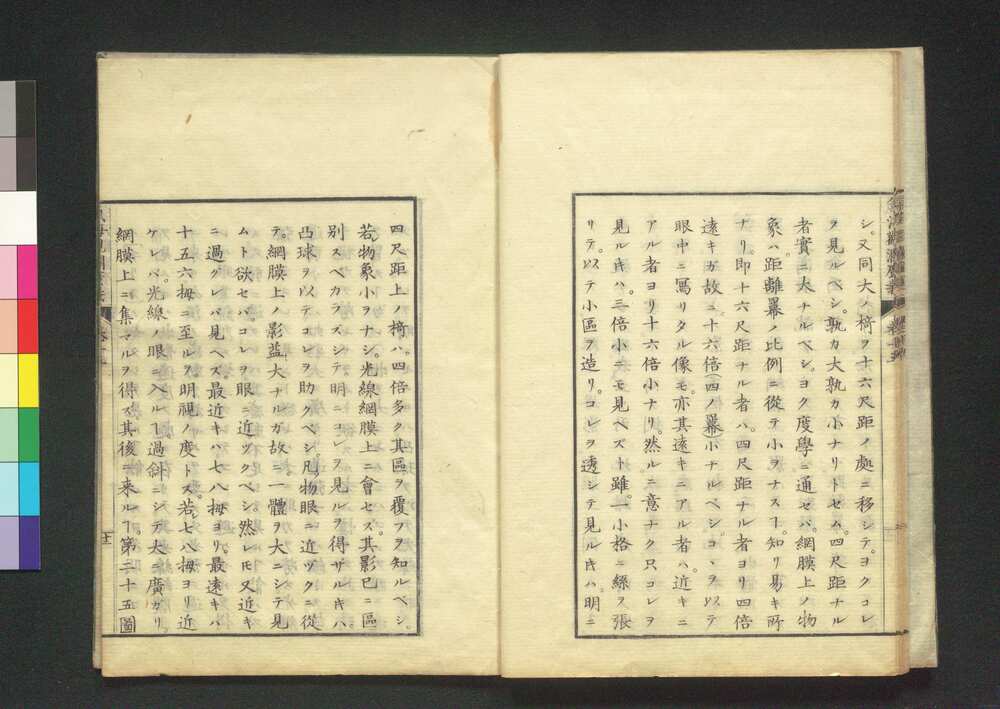 シ。又同大ノ椅ヲ十六尺距ノ處ニ移シテ。ヨクコレ
ヲ見ルベシ。孰カ大孰カ小ナリトセム。四尺距ナル
者實ニ大ナルベシ。ヨク度學ニ通セバ。網膜上ノ物
象ハ。距離羃ノ比例ニ從テ小ヲナスヿ。知リ易キ所
ナリ。即十六尺距ナル者ハ。四尺距ナル者ヨリ四倍
遠キガ故ニ。十六倍(四ノ羃)小ナルベシ。コヽヲ以テ
眼中ニ寫リタル像モ。亦其遠キニアル者ハ。近キニ
アル者ヨリ十六倍小ナリ。然ルニ意ナク只コレヲ
見ル𪜈ハ。三倍小ニモ見ヘズト雖。一小格ニ絲ヲ張
リテ。以テ小區ヲ造リ。コレヲ透シテ見ル𪜈ハ明ニ
四尺距上ノ椅ハ。四倍多ク其區ヲ覆フヲ知ルベシ。
若物象小ヲナシ。光線網膜上ニ會セズ。其影已ニ區
別スベカラズシテ明ニコレヲ見ルヲ得ザル𪜈ハ
凸球ヲ以テコレヲ助クベシ。凡物眼ニ近ヅクニ從
テ。網膜上ノ影益大ナルガ故ニ一體ヲ大ニシテ見
ムト欲セバ。コレヲ眼ニ近ヅクベシ然レ𪜈又近キ
ニ過グレバ見ヘズ。最近キハ七八拇ヨリ。最遠キハ
十五六拇ニ至ルヲ明視ノ度トス。若七八拇ヨリ近
ケレバ。光線ノ眼ニ入ルヿ過斜ニシテ。大ニ廣ガリ
網膜上ニ集マルヲ得ズ其後ニ来ルヿ第二十五圖